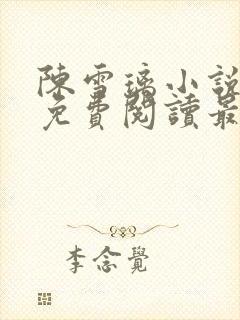 陳雪璃小說
免費閱讀最
李念覺